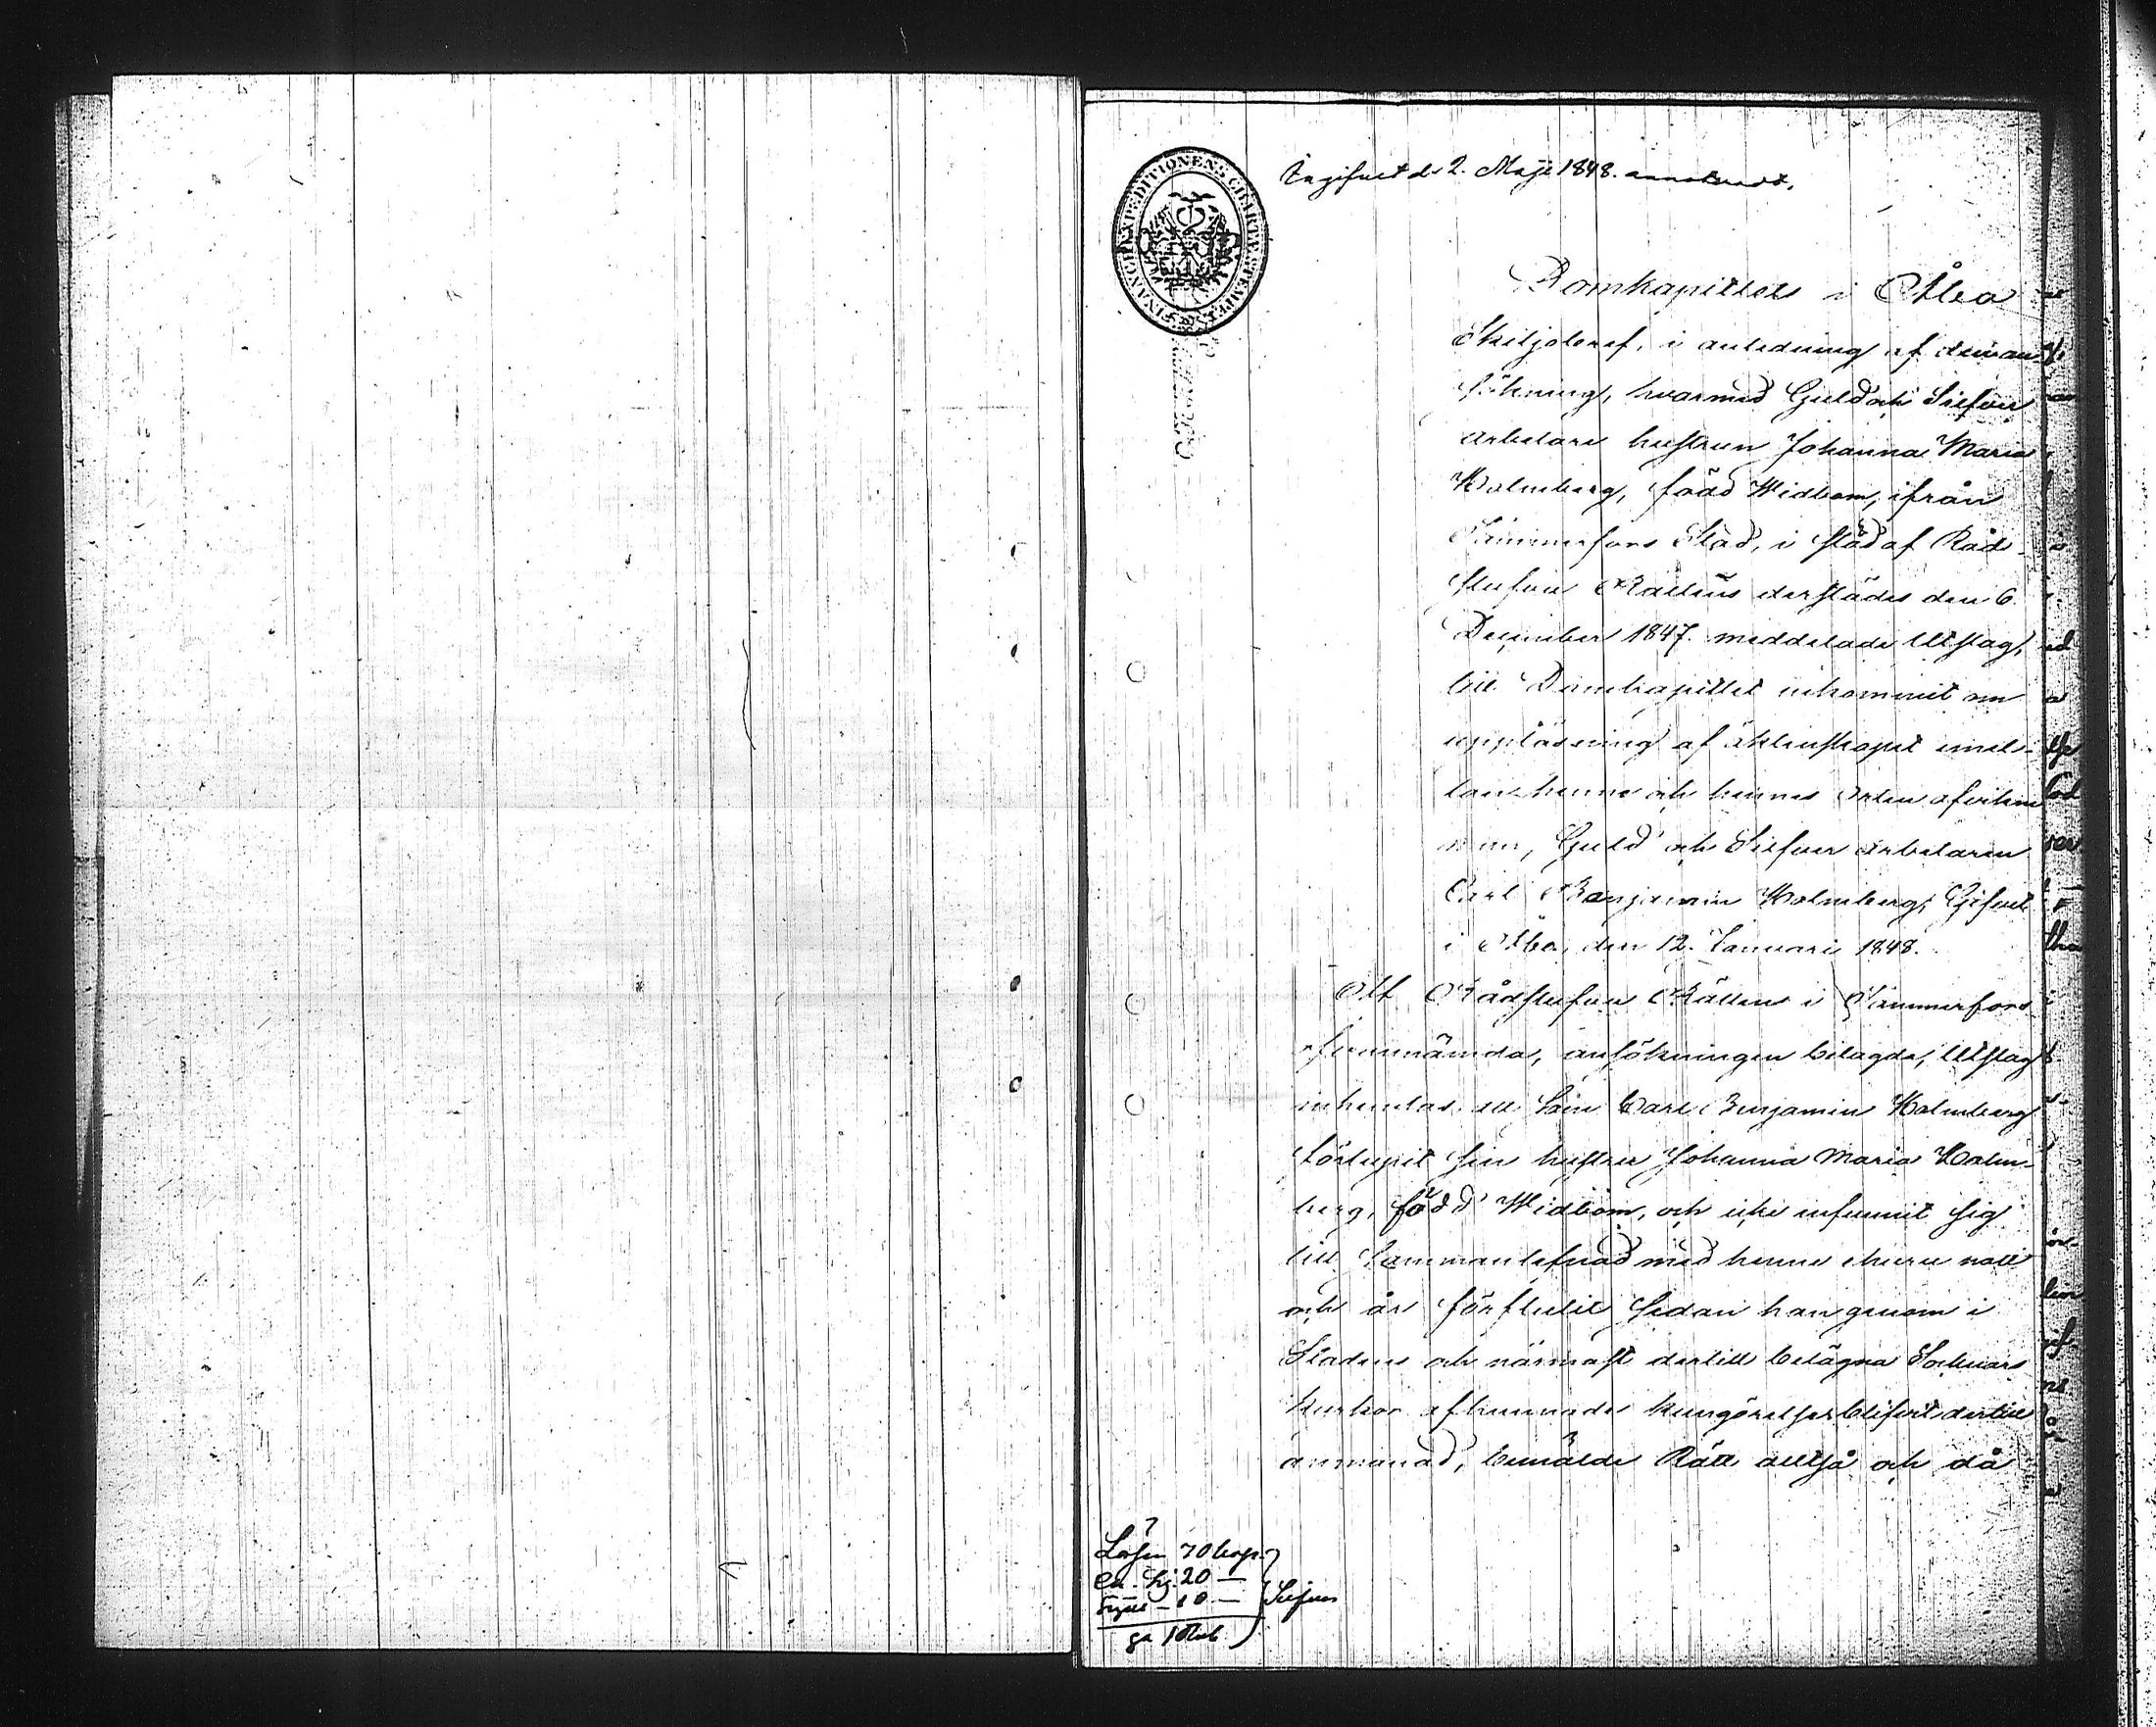 FINANCE EXPEDITIONENS CHARTÆ STEMPEL
Ingifvet d. 2. Maji 1848.
Domkapitlets i Åbo
Skiljobref, i anledning af den an-
sökning, hvarmed Guld och Silfver
arbetare hustrun Johanna Maria
Holmberg, född Widbom, ifrån
Tammerfors Stad, i stöd af Råd-
stufvu Rättens derstädes den 6
December 1847 meddelade Utslag,
till Domkapitlet inkommit om
upplösning af äktenskapet emel-
lan henne och hennes orten afvikne
man, Guld och Silfver arbetaren
Carl Benjamin Holmberg; Gifvet
i Åbo, den 12. Januari 1848.
Af Rådstufvu Rättens i Tammerfors
ofvannämda, ansökningen bilagda, Utslag
inhemtas, att som Carl Benjamin Holmberg
förlupit sin hustru Johanna Maria Holm-
berg, född Widbom, och icke infunnit sig
till Sammanlefnad med henne ehuru natt
och år förflutit sedan han genom i
Stadens och närmast dertill belägna Socknars
kyrkor afkunnade kungörelser blifvit dertill
anmanad, bemälde Rätt alltså och då
Lösen 70 kop.
20 —
10 —
Silfver
1 Rub